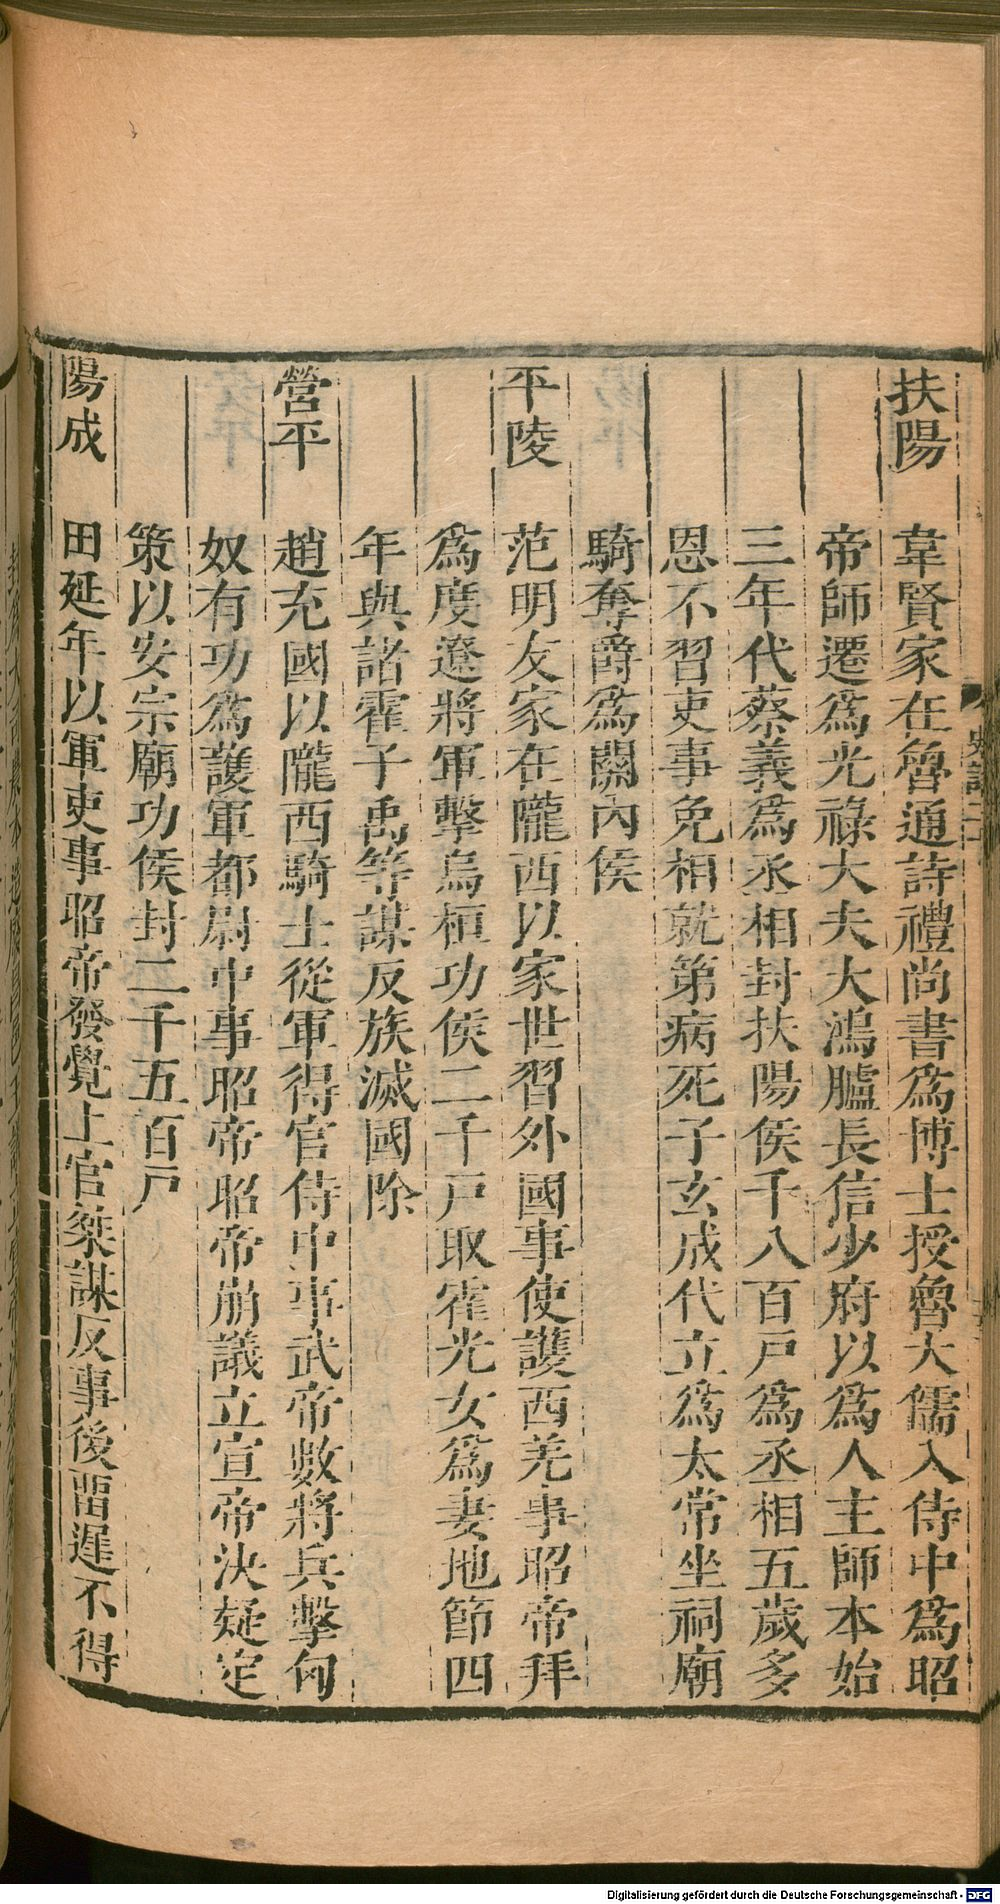 扶陽　韋賢家在魯通詩禮尚書爲博士授魯大儒入侍中爲昭
帝師遷爲光祿大夫大鴻臚長信少府以爲人主師本始
三年代蔡義爲丞相封扶陽侯千八百戸爲丞相五歲多
恩不習吏事免相就第病死子玄成代立爲太常坐祠廟
騎奪爵爲關內侯
平陵　范明友家在隴西以家世習外國事使護西羌事昭帝拜
爲度遼將軍擊烏桓功侯二千戸取霍光女爲妻地節四
年與諸霍子禹等謀反族滅國除
營平　趙充國以隴西騎士從軍得官侍中事武帝數將兵擊匈
奴有功爲護軍都尉中事昭帝昭帝崩議立宣帝決疑定
策以安宗廟功侯封二千五百戸
陽成　田延年以軍吏事昭帝發覺上官桀謀反事後畱遲不得
史記二
Digitalisierung gefördert durch die Deutsche Forschungsgemeinschaft - DFG